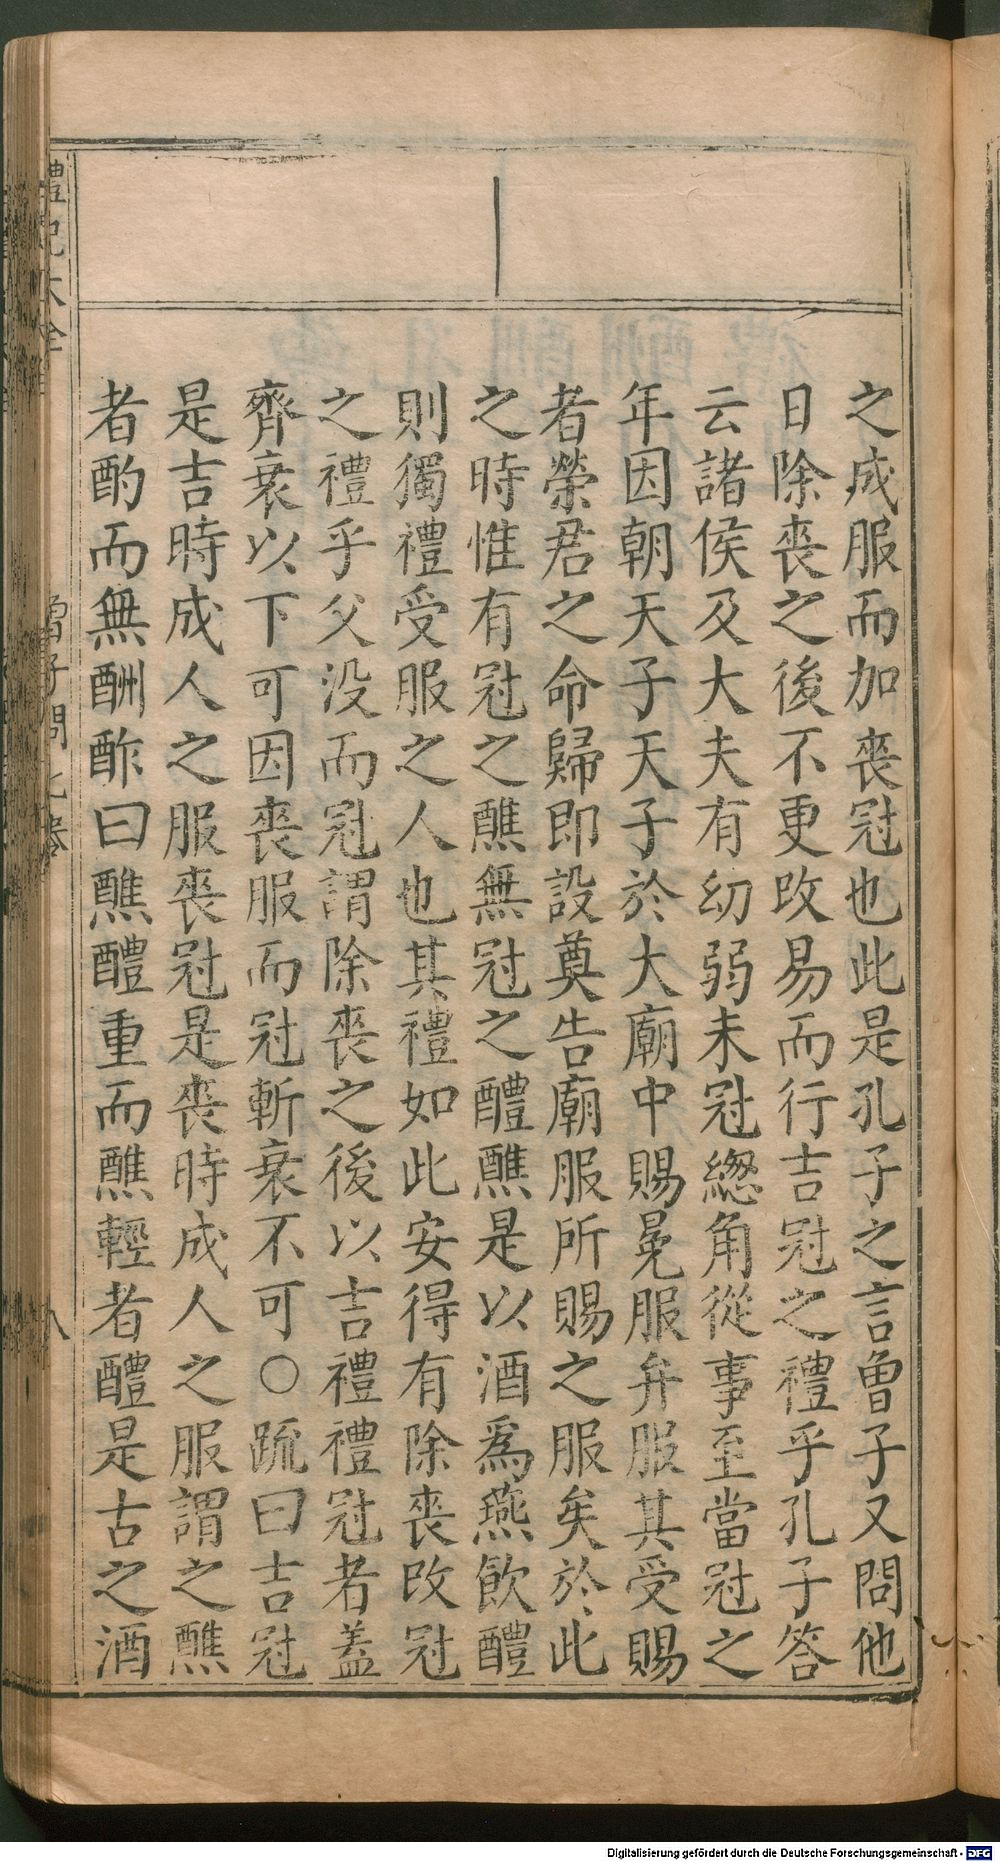 之成服而加喪冠也此是孔子之言曾子又問他
日除喪之後不更改易而行吉冠之禮乎孔子答
云諸侯及大夫有幼弱未冠緫角從事至當冠之
年因朝天子天子於大廟中賜冕服弁服其受賜
者榮君之命歸即設奠告廟服所賜之服矣於此
之時惟有冠之醮無冠之醴醮是以酒爲燕飲醴
則獨禮受服之人也其禮如此安得有除喪改冠
之禮乎父没而冠謂除喪之後以吉禮禮冠者蓋
齊衰以下可因喪服而冠斬衰不可○疏曰吉冠
是吉時成人之服喪冠是喪時成人之服謂之醮
者酌而無酬酢曰醮醴重而醮輕者醴是古之酒
禮記大全 曾子問 七卷 八
Digitalisierung gefördert durch die Deutsche Forschungsgemeinschaft - DFG